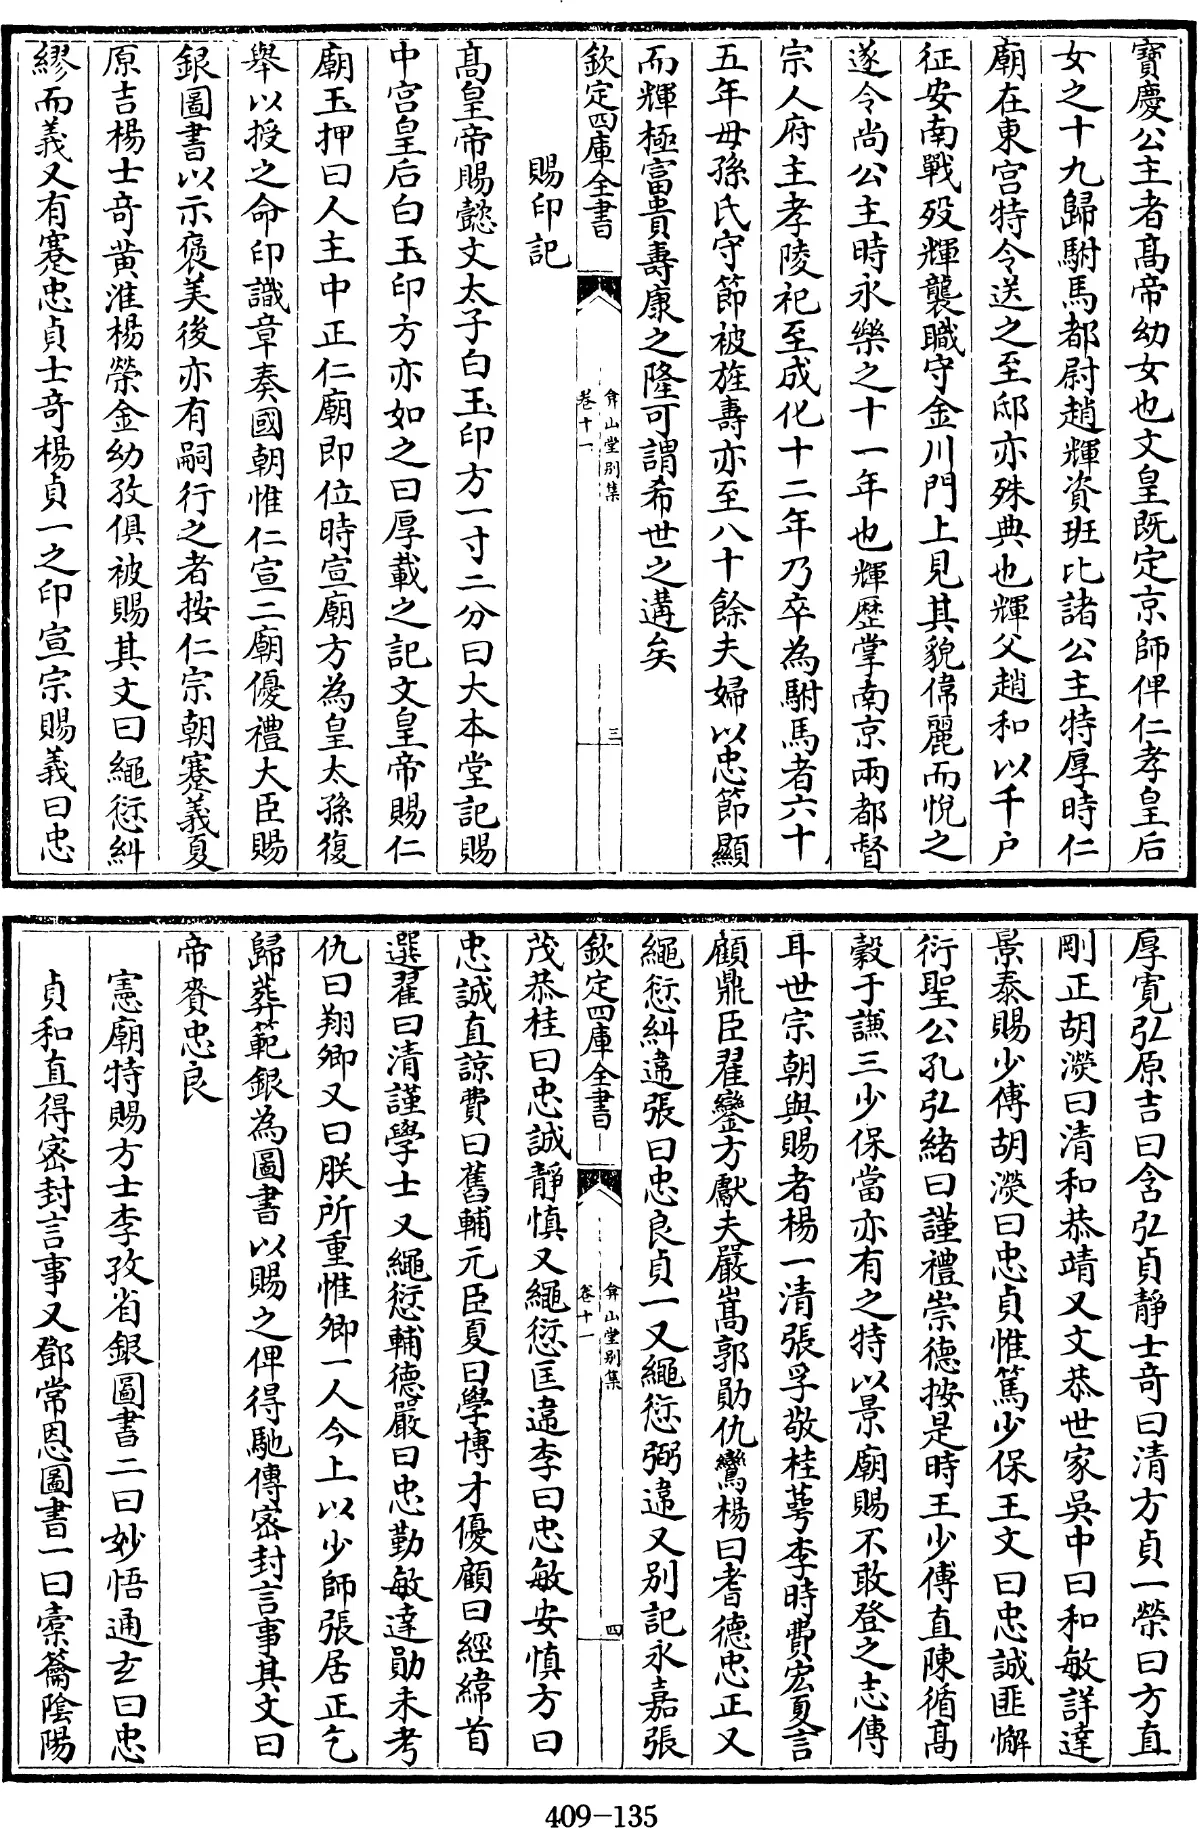 寶慶公主者高帝幼女也文皇既定京師俾仁孝皇后
女之十九歸駙馬都尉趙輝資班比諸公主特厚時仁
廟在東宮特令送之至邸亦殊典也輝父趙和以千戶
征安南戰歿輝襲職守金川門上見其貌偉麗而悅之
遂令尚公主時永樂之十一年也輝歷掌南京兩都督
宗人府主孝陵祀至成化十二年乃卒為駙馬者六十
五年母孫氏守節被旌壽亦至八十餘夫婦以忠節顯
而輝極富貴壽康之隆可謂希世之遘矣
欽定四庫全書
弇山堂別集
卷十一
三
賜印記
高皇帝賜懿文太子白玉印方一寸二分曰大本堂記賜
中宮皇后白玉印方亦如之曰厚載之記文皇帝賜仁
廟玉押曰人主中正仁廟即位時宣廟方為皇太孫復
舉以授之命印識章奏國朝惟仁宣二廟優禮大臣賜
銀圖書以示褒美後亦有嗣行之者按仁宗朝蹇義夏
原吉楊士奇黃淮楊榮金幼孜俱被賜其文曰繩愆糾
繆而義又有蹇忠貞士奇楊貞一之印宣宗賜義曰忠
厚寬弘原吉曰含弘貞靜士奇曰清方貞一榮曰方直
剛正胡濙曰清和恭靖又文恭世家吳中曰和敏詳達
景泰賜少傅胡濙曰忠貞惟篤少保王文曰忠誠匪懈
衍聖公孔弘緒曰謹禮崇德按是時王少傅直陳循高
穀于謙三少保當亦有之特以景廟賜不敢登之志傳
耳世宗朝與賜者楊一清張孚敬桂萼李時費宏夏言
顧鼎臣翟鑾方獻夫嚴嵩郭勛仇鸞楊曰耆德忠正又
繩愆糾違張曰忠良貞一又繩愆弼違又別記永嘉張
欽定四庫全書
弇山堂別集
卷十一
四
茂恭桂曰忠誠靜慎又繩愆匡違李曰忠敏安慎方曰
忠誠直諒費曰舊輔元臣夏曰學博才優顧曰經緯首
選翟曰清謹學士又繩愆輔德嚴曰忠勤敏達勛未考
仇曰翔卿又曰朕所重惟卿一人今上以少師張居正乞
歸葬範銀為圖書以賜之俾得馳傳密封言事其文曰
帝賚忠良
憲廟特賜方士李孜省銀圖書二曰妙悟通玄曰忠
貞和直得密封言事又鄧常恩圖書一曰橐籥陰陽
409-135